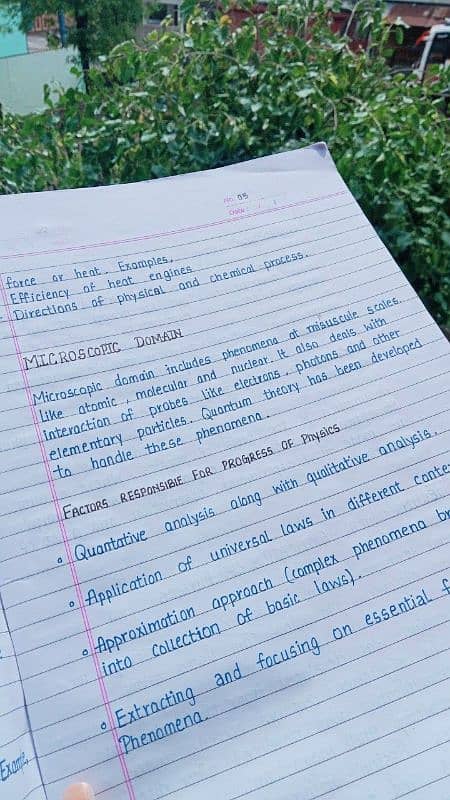 No. 05
Date / /
force or heat. Examples,
Efficiency of heat engines
Directions of physical and chemical process.
MICROSCOPIC DOMAIN
Microscopic domain includes phenomena at misuscule scales.
like atomic, molecular and nuclear. It also deals with
interaction of probes like electrons, photons and other
elementary particles. Quantum theory has been developed
to handle these phenomena.
FACTORS RESPONSIBLE FOR PROGRESS OF PHYSICS
• Quantative analysis along with qualitative analysis.
• Application of universal laws in different conte
• Approximation approach (complex phenomena br
into collection of basic laws).
• Extracting and focusing on essential f
Phenomena.
Example,